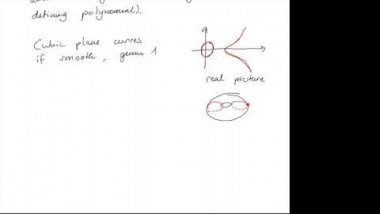 defining polynomial).
Cubic plane curves
if smooth, genus 1
real picture